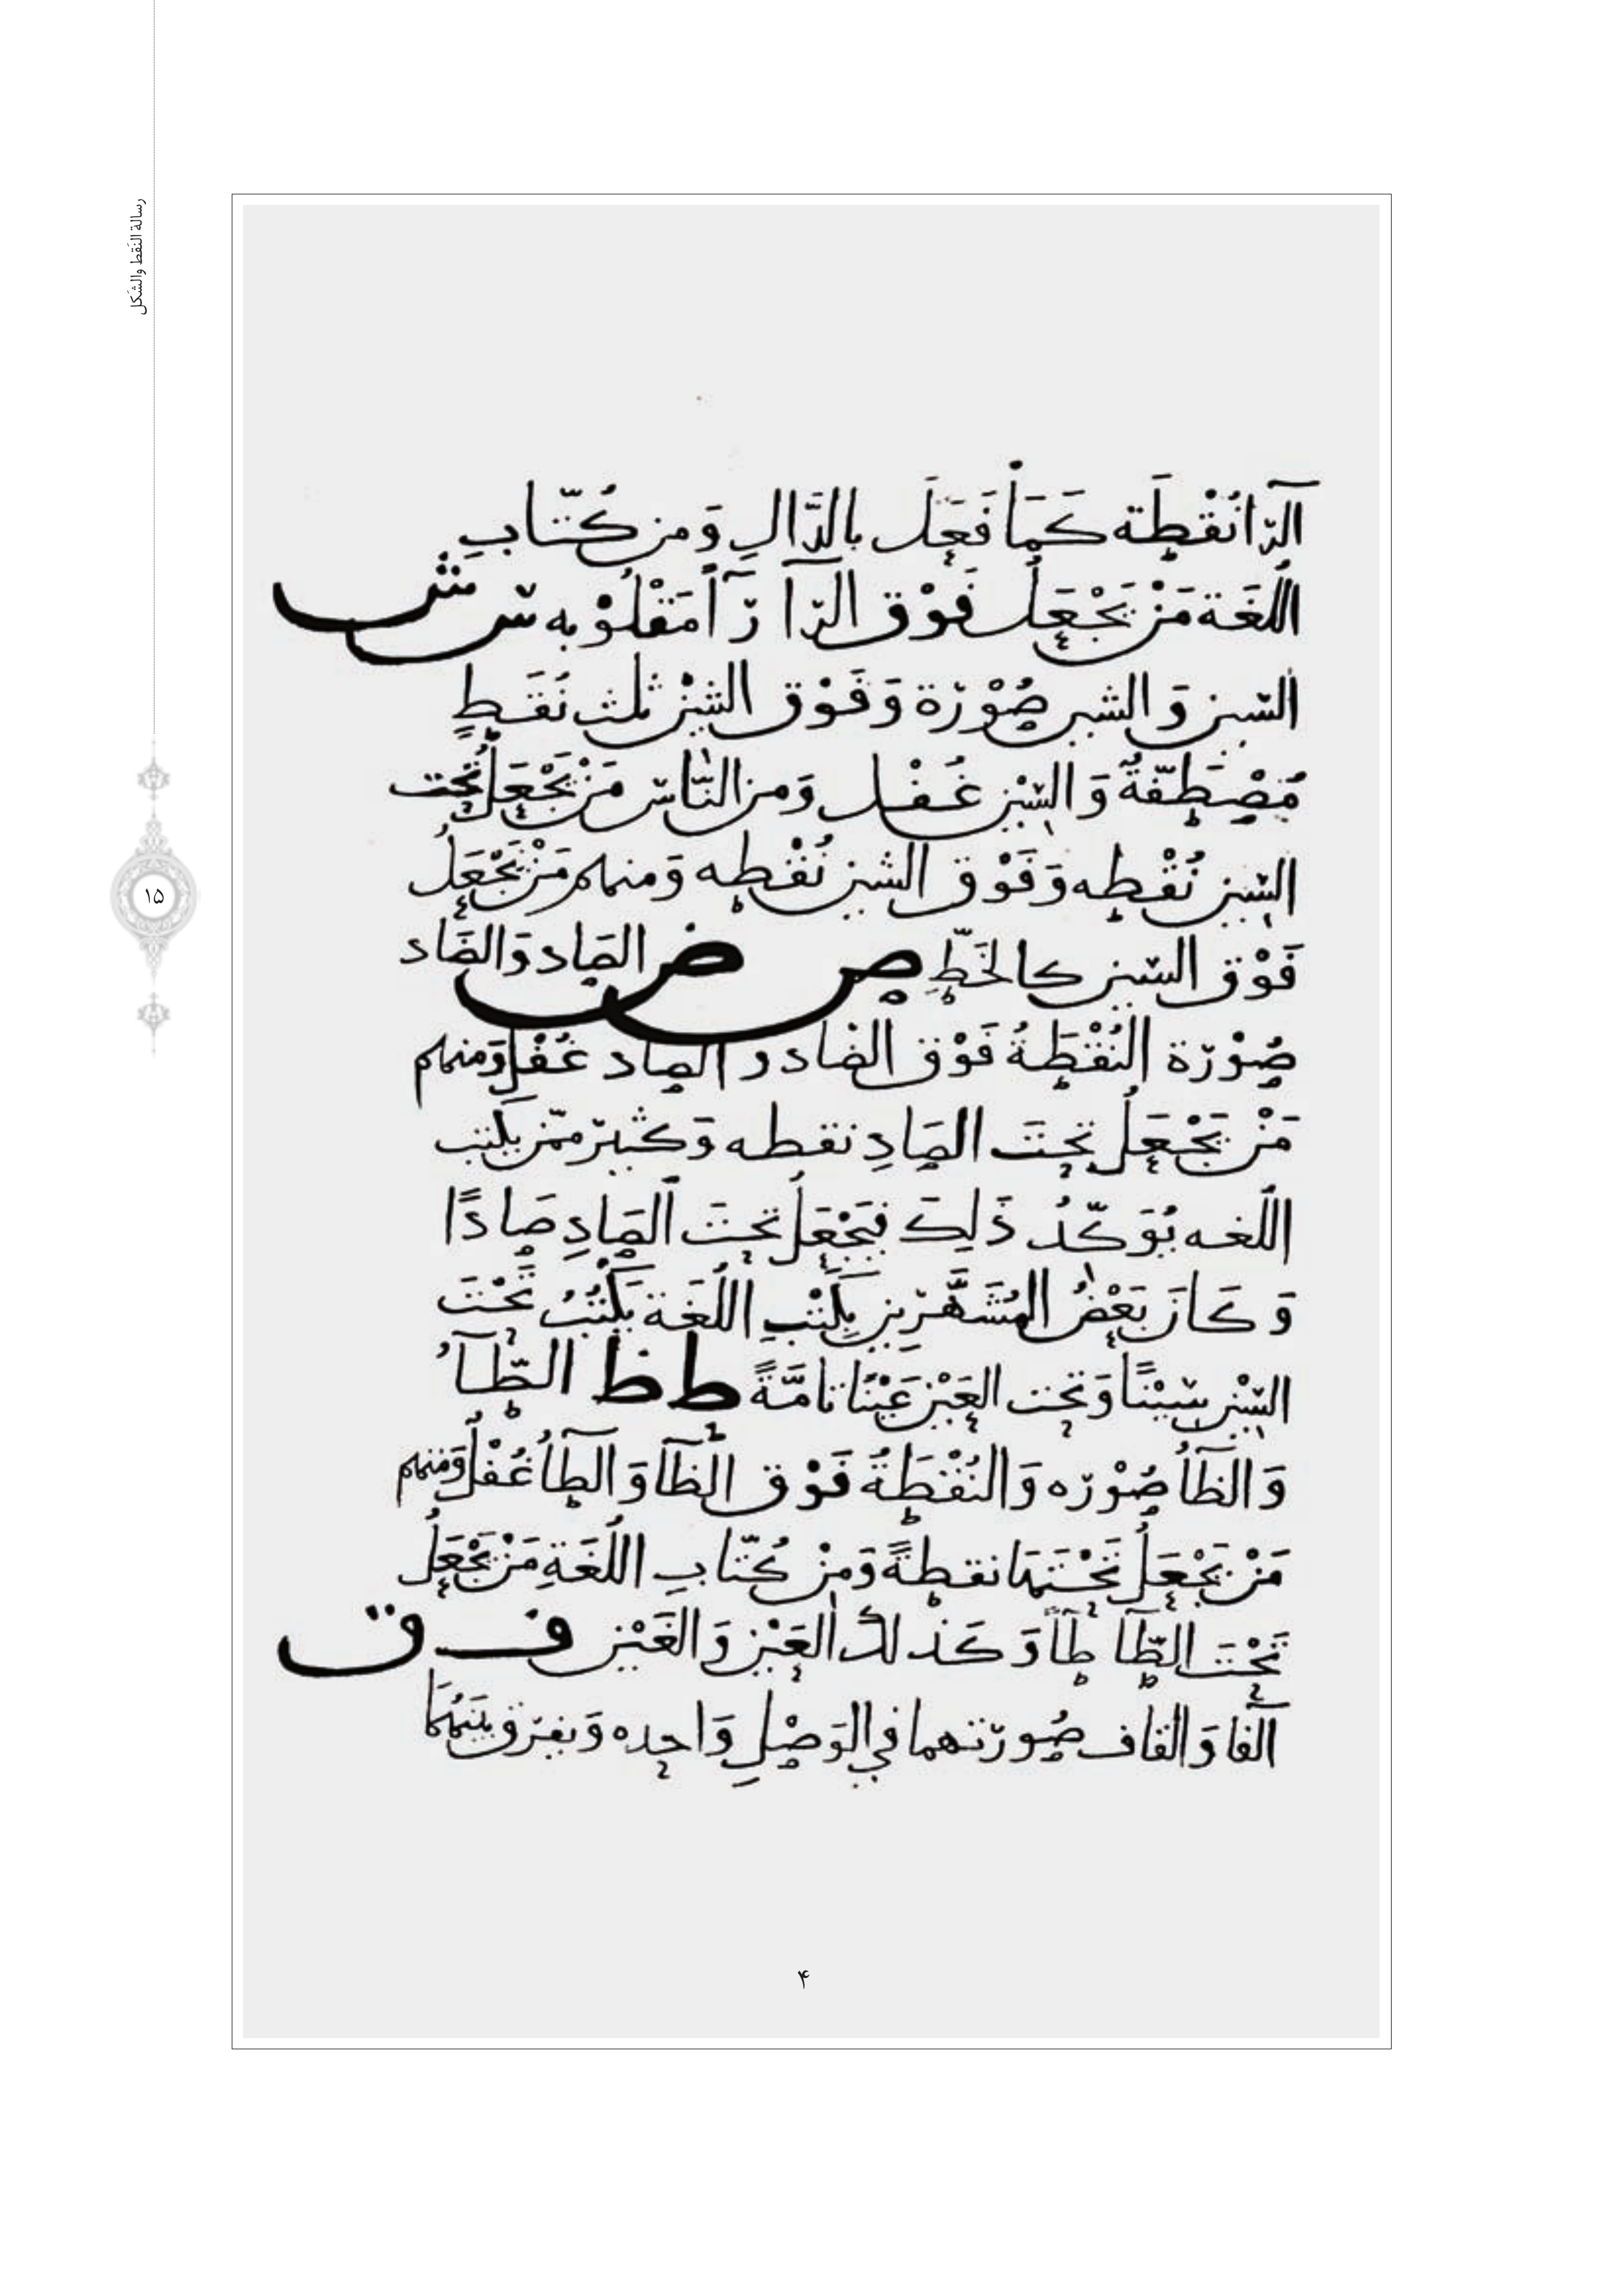 رسالة النقط والشكل
۱۵
الرّآ نُقْطَة كَمَا فَعَلَ بالدَّالِ وَمن كُتّابِ
اللُّغَة مَنْ يَجْعَلُ فَوْق الرّآ رّآءً مَقْلُوْبه س ش
السّين وَالشين صُوْرَة وَفَوْق الشِيْن ثلث نُقَطٍ
مُصْطَفّةٌ وَالسِّيْن غُفْل وَمن النّاس مَنْ يَجْعَلُ تَحْت
السِّيْن نُقْطه وَفَوْق الشين نُقْطه وَمنهم مَنْ يَجْعَلُ
فَوْق السّين كالخَطِّ ص ض الصَاد وَالضَاد
صُوْرَة النُقْطَةُ فَوْق الضاد و الصاد غُفْل وَمنهم
مَنْ يَجْعَلُ تحتَ الصَادِ نقطه وَكثير ممّن يكتب
اللّغه يُوَكّدُ ذَلِكَ فيَجْعَلُ تحتَ الصَادِ صَادًا
وَكَانَ بَعْضُ المُشَهَّرِين بِكَتْبِ اللُّغَة يَكْتُبُ تَحْتَ
السِّيْن سِيْنًا وَتحت العَيْن عَيْنًا تامَّةً ط ظ الطّآءُ
وَالظآءُ صُوْرَه وَالنُقْطَةُ فَوْق الظآ وَالطآءُ غُفْلُ وَمنهم
مَنْ يَجْعَلُ تَحْتَهَا نقطةً وَمِنْ كُتّابِ اللُّغَةِ مَنْ يَجْعَلُ
تَحْتَ الطّآ طآءً وَكَذلكَ العَيْن وَالغَيْن ف ق
الفآ وَالقاف صُورَتهما في الوَصْلِ وَاحده وَيفرّق بَيْنَهُمَا
۴